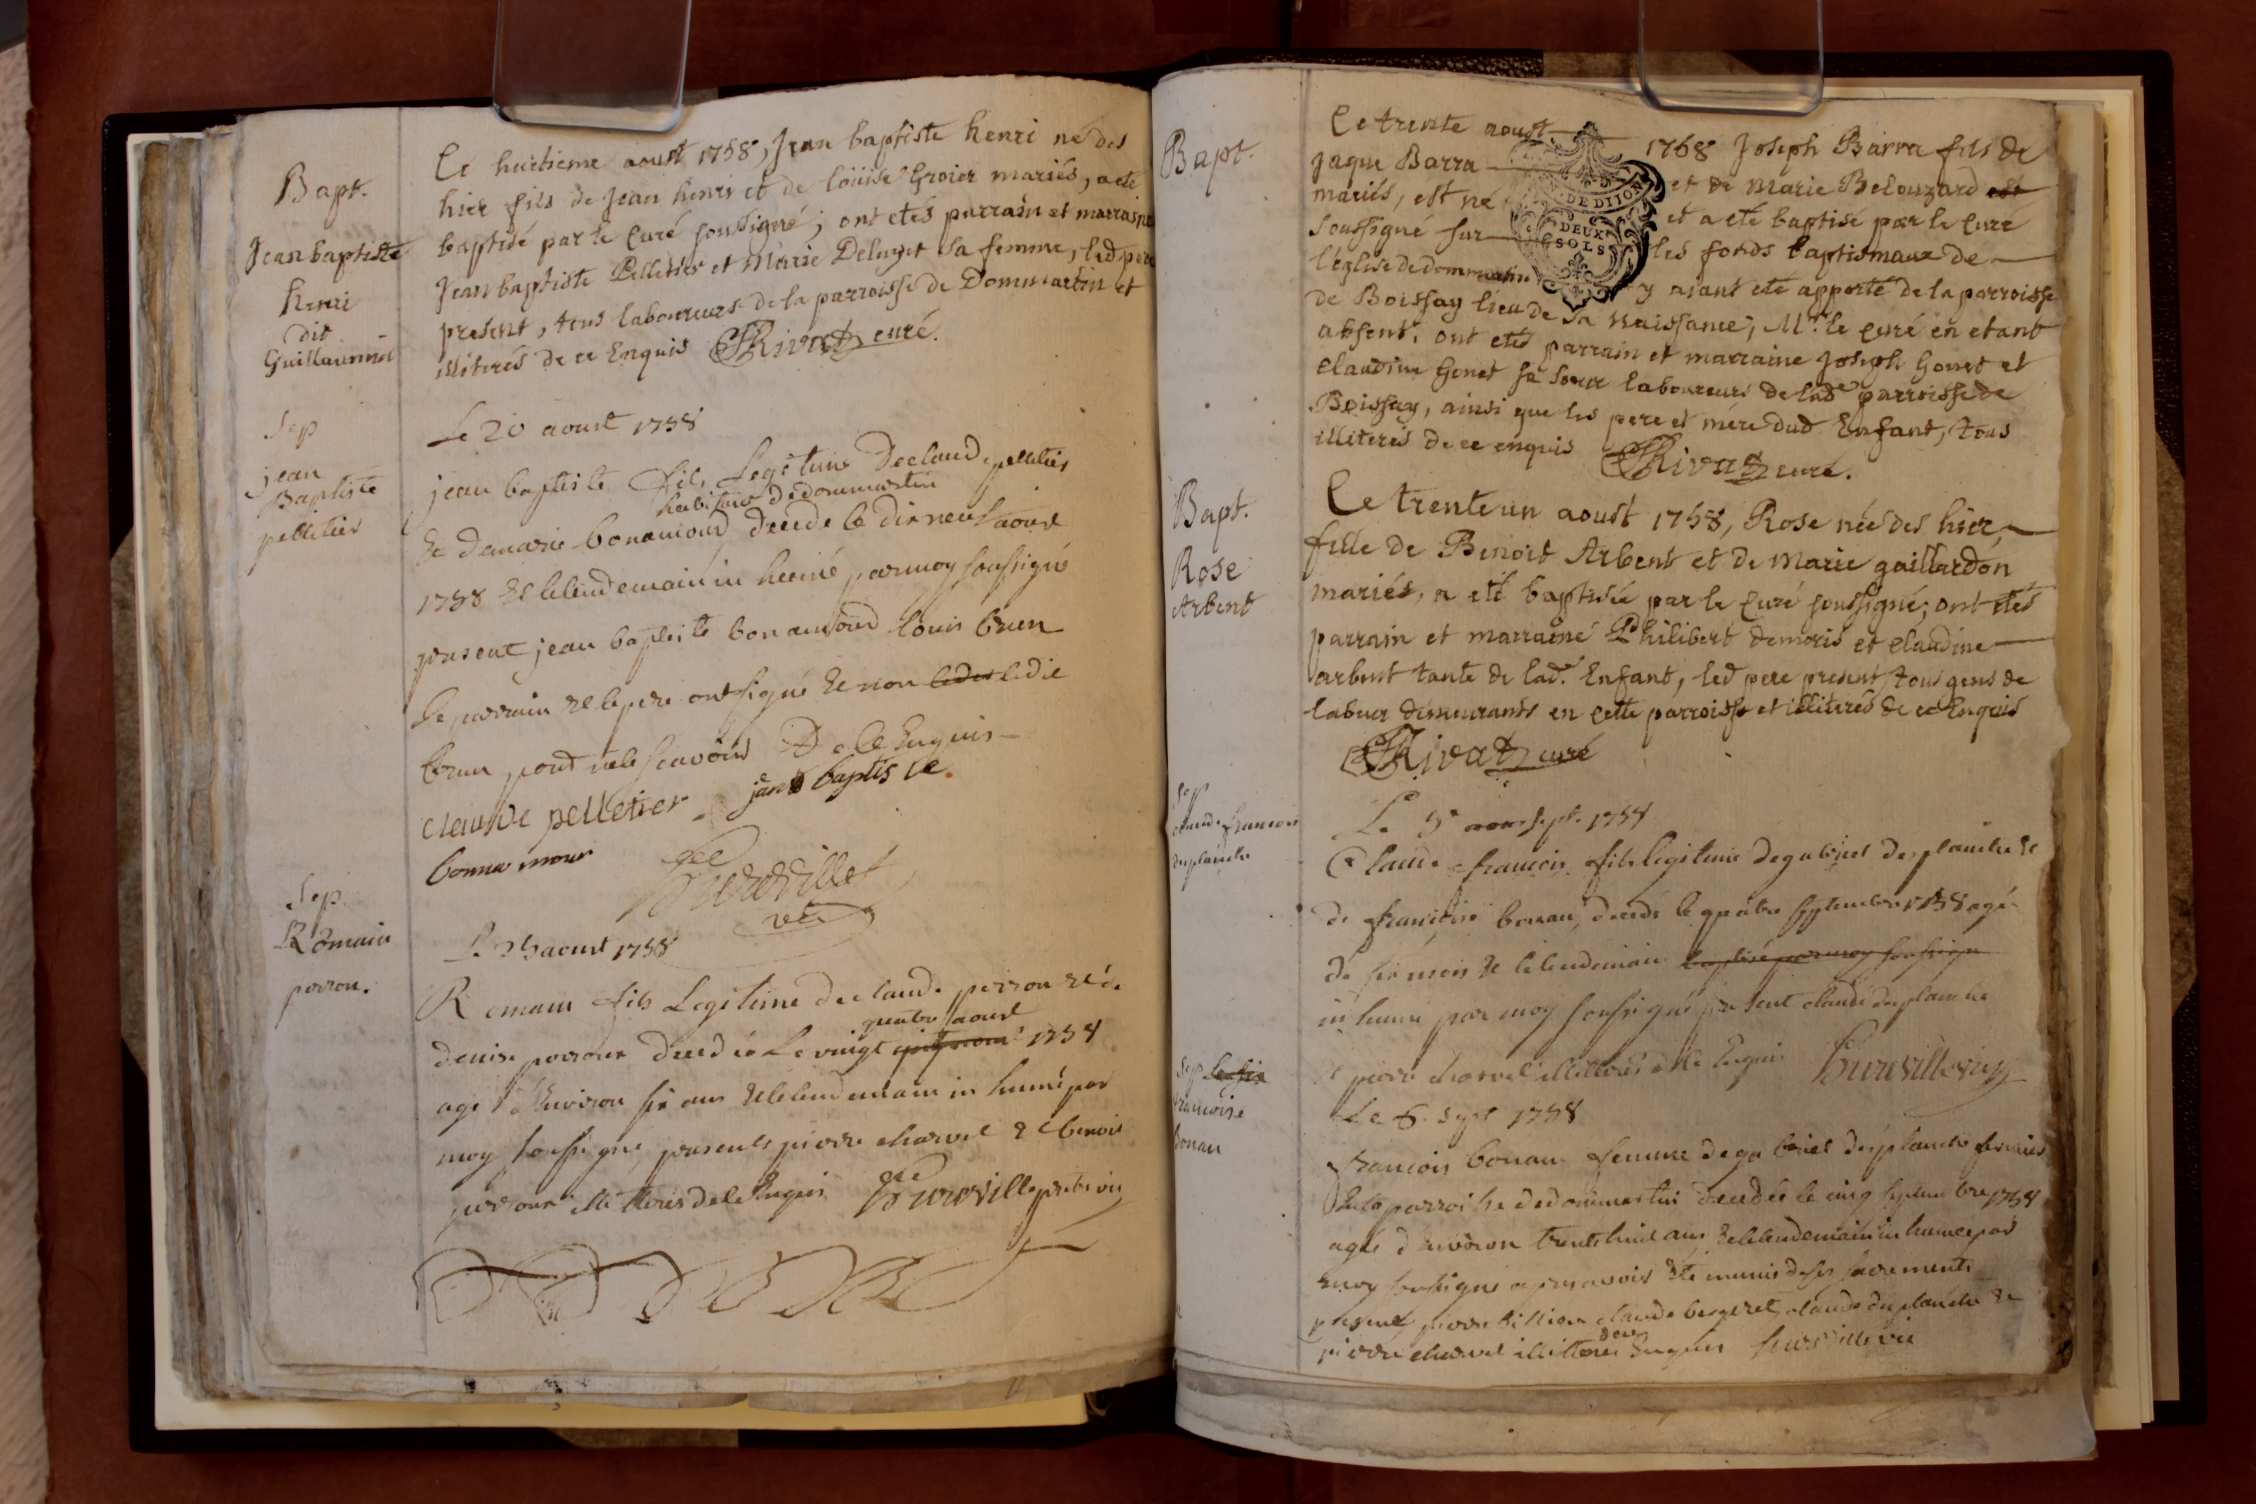 Bapt.
Jean baptiste
henri
dit
Guillaumin
Le huitieme aoust 1758, Jean baptiste henri né dès
hier fils de Jean henri et de loüise Groier mariés, a eté
baptisé par le Curé soussigné; ont etés parrain et marraine
Jean baptiste Pelletier et Marie Deluget sa femme, led. pere
present, tous laboureurs de la parroisse de Dommartin et
illiterés de ce Enquis Rivat curé.
Sep
jean
Baptiste
pelletier
Le 20 aoust 1758
jean baptiste fils Legitime De claude pelletier
habitant de dommartin
et de marie bonamour decede le dix neuf aoust
1758 et le lendemain inhumé par moy soussigné
present jean baptiste bonamour louis brun
le parrain et le pere ont signé et non ledit
brun pour ne le scavoir De ce Enquis
claude pelletier jan baptiste
bonna mour
Sep
Romain
perron.
Le 25 aoust 1758
Romain fils Legitime de claude perron et de
quatre aoust
denise perron decedé Le vingt 1758
agé d'Environ six ans et le lendemain inhumé par
moy soussigné, presents pierre charvet et benoit
perron illitterés de le Enquis
Bapt.
Le trente aoust 1768 Joseph Barra fils de
jaque Barra et de Marie Belouzard est
mariés, est né et a eté baptisé par le Curé
soussigné sur les fonds baptismaux de
l'église de dommartin y aiant eté apporté de la parroisse
de Boissay lieu de sa naissance; Mr. le curé en etant
absent. ont etés parrain et marraine Joseph Gonet et
claudine Gonet sa soeur laboureurs de lade. parroisse de
Boissay, ainsi que les pere et mére dud. Enfant, tous
illiterés de ce enquis Rivat curé.
DE DIJON
DEUX
SOLS
Bapt.
Rose
Arbent
Le trente un aoust 1758, Rose née dès hier,
fille de Benoit Arbent et de Marie gaillardon
mariés, a eté baptisée par le Curé soussigné; ont etés
parrain et marraine Philibert demoris et claudine
arbent tante de lad. Enfant, led. pere present, tous gens de
labeur demeurants en cette parroisse et illiterés de ce Enquis
Rivat curé
Sep
claude francois
desplanche
Le 5e sept. 1758
Claude francois fils legitime de gabriel desplanche et
de francoise bonan, decedé le quatre septembre 1758 agé
de six mois et le lendemain baptisé par moy soussigné
inhumé par moy soussigné present claude desplanche
et pierre charvet illitterés de le Enquis
Sep
francoise
bonan
Le 6. sept 1758
francoise bonan femme de gabriel desplanche
de la parroisse de dommartin decedée le cinq septembre 1758
agée d'environ trente huit ans et le lendemain inhumée par
moy soussigné apres avoir eté munie de ses sacrements
present pierre claude bergeret, claude desplanche et
pierre charvet illitterés de ce Enquis